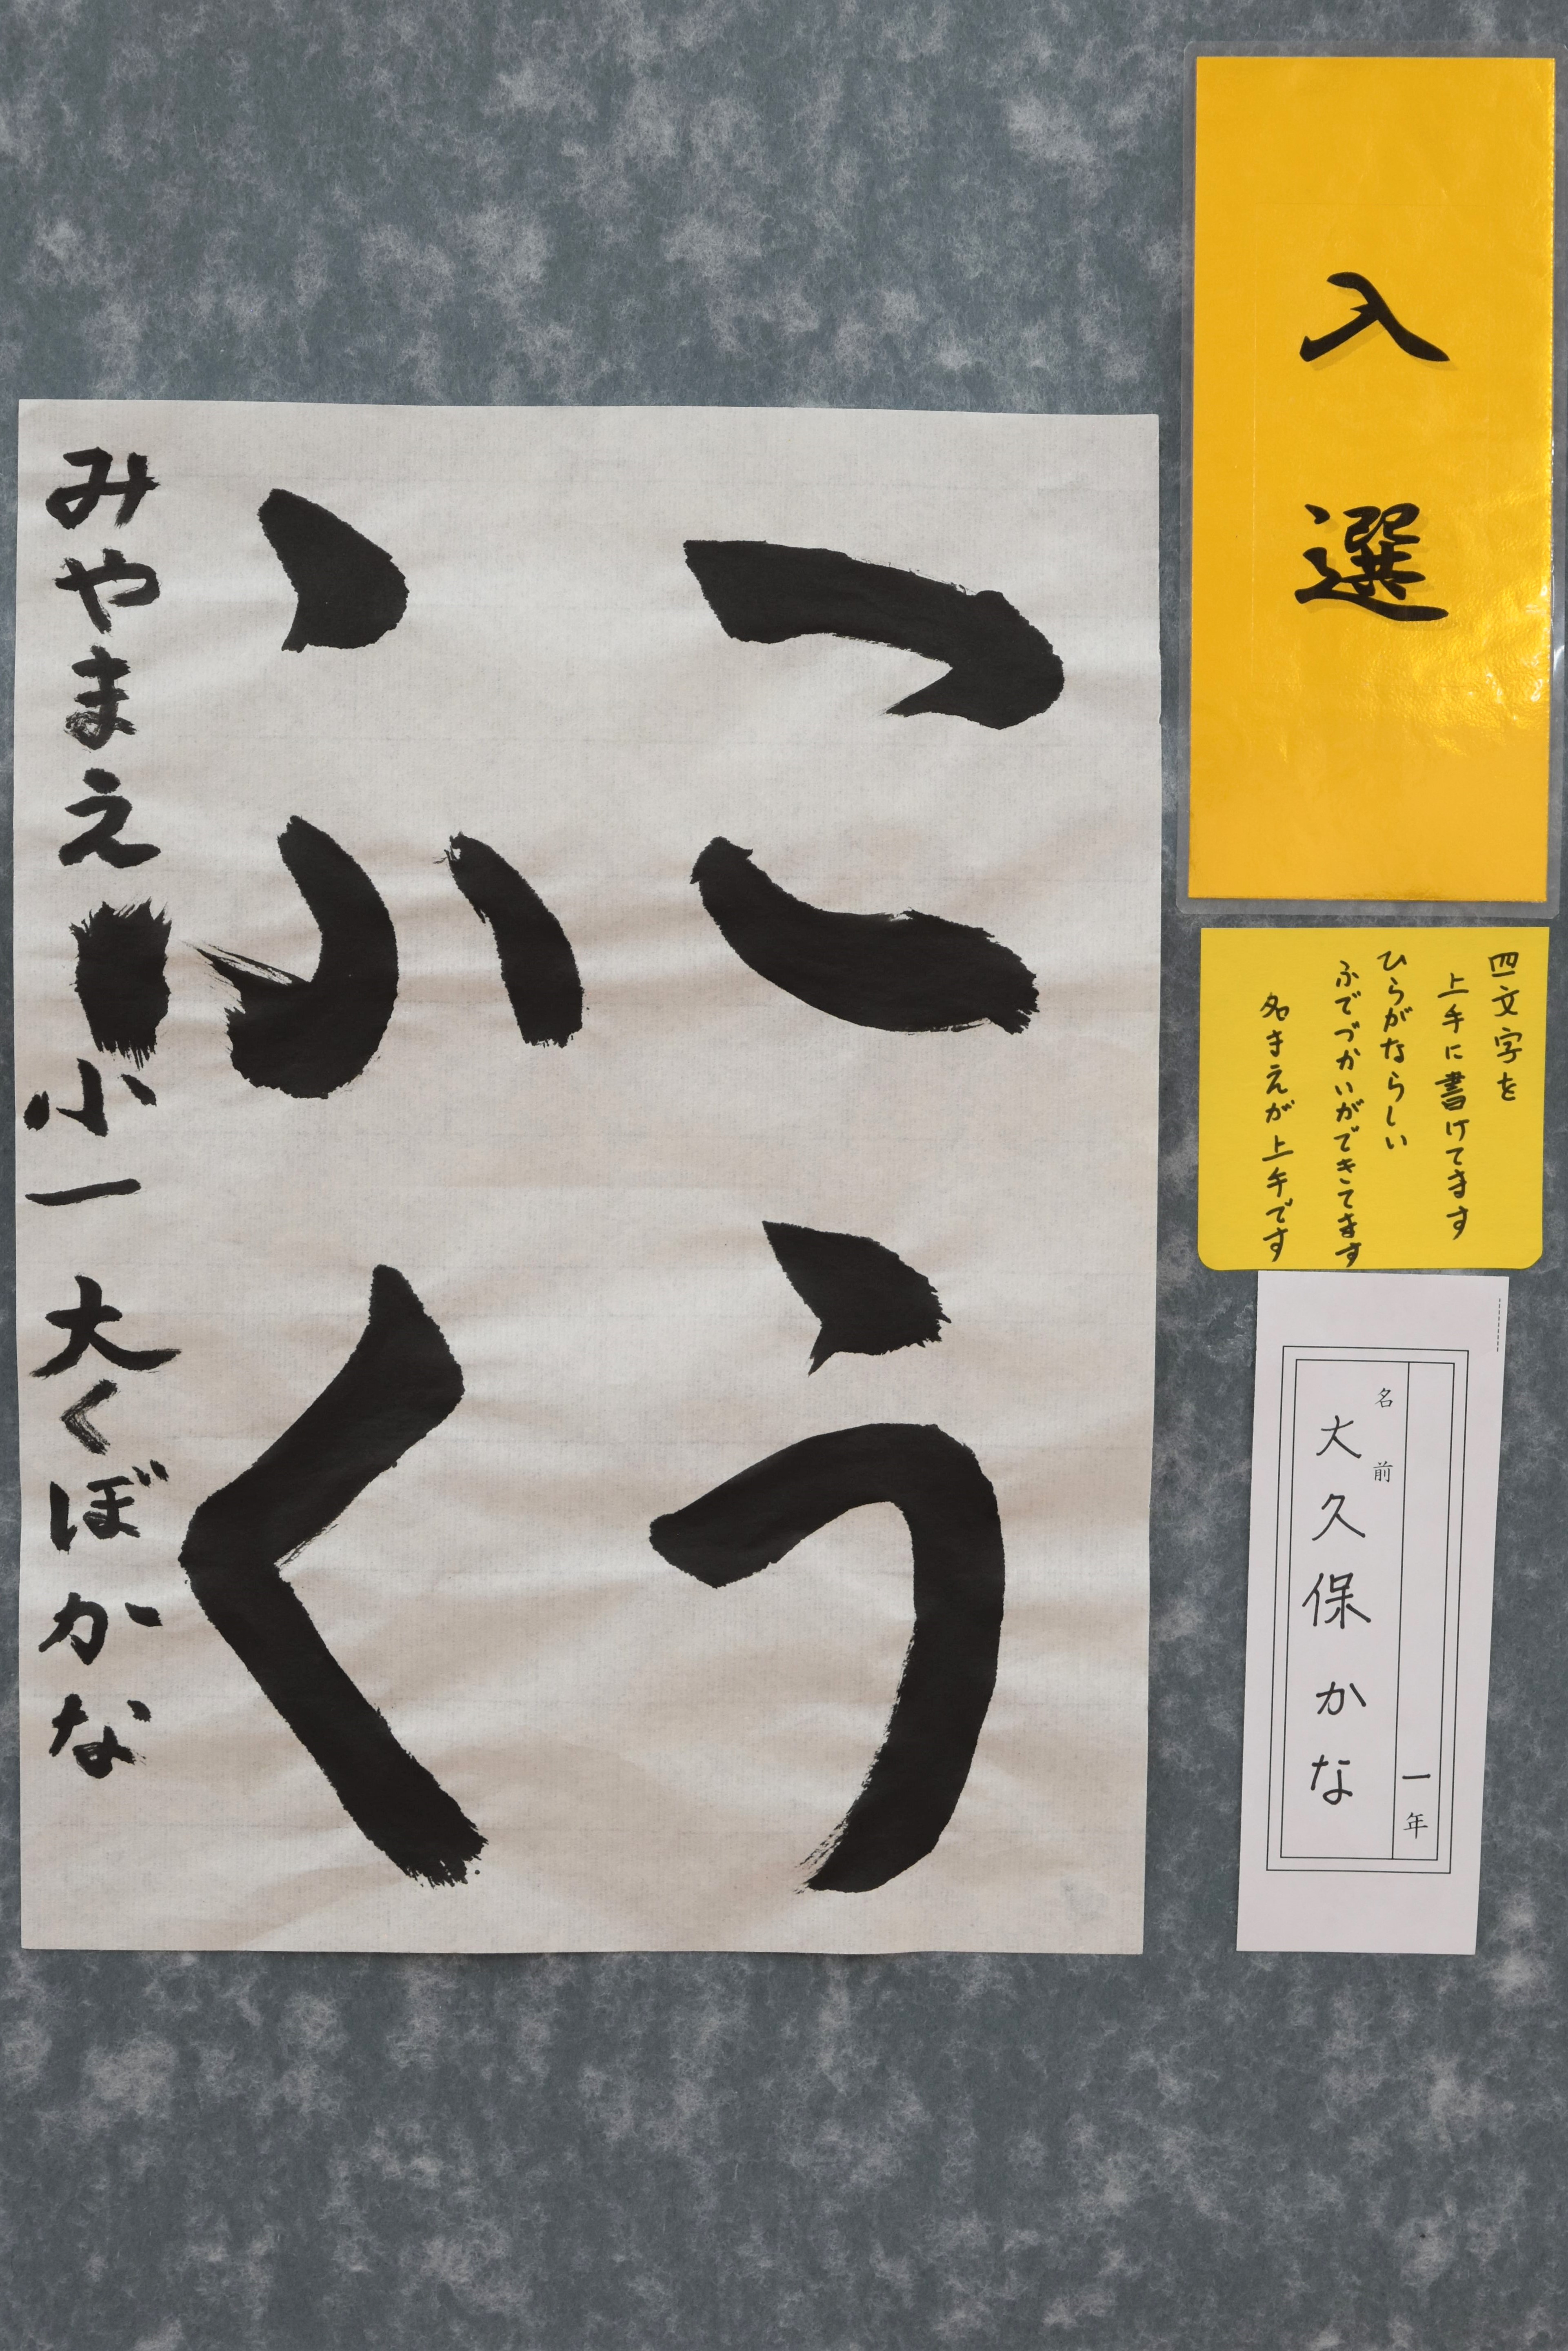 入選
四文字を
上手に書けてます
ひらがならしい
ふでづかいができてます
名まえが上手です
一年
名前
大久保かな
こう
ふく
みやまえ小一 大くぼかな